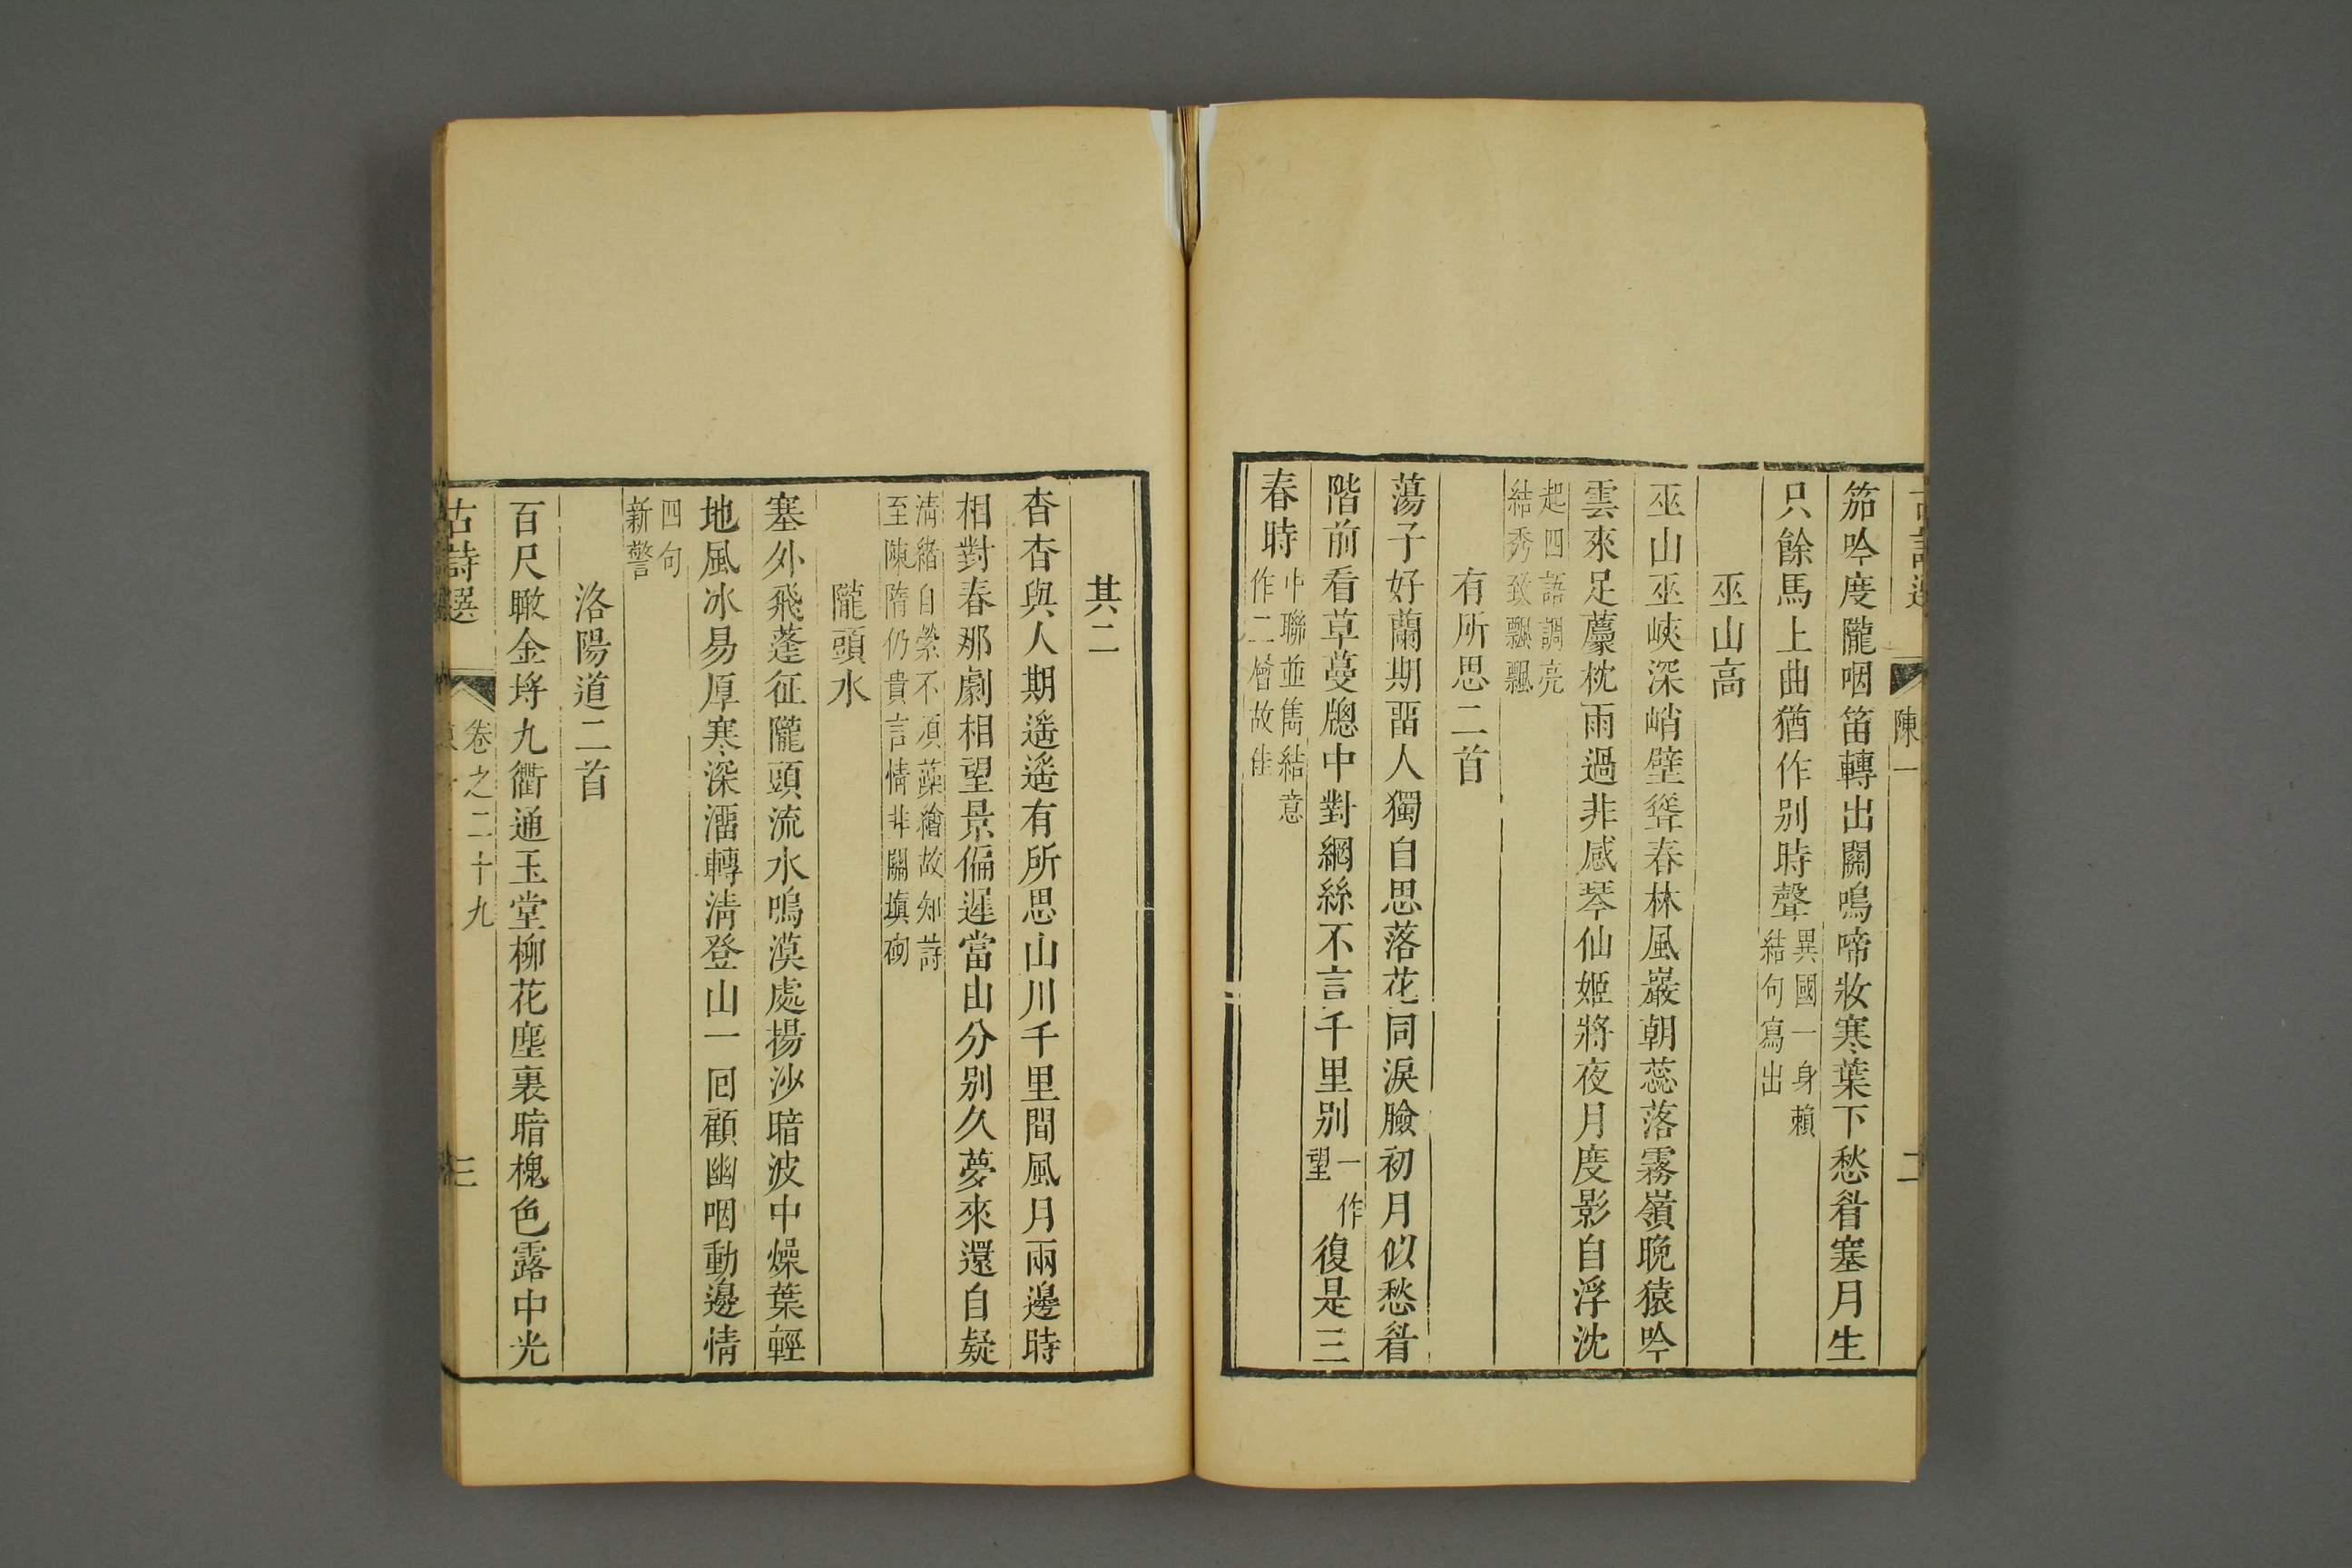 陳一
二
笳吟度隴咽笛轉出關鳴啼妝寒葉下愁眥塞月生
只餘馬上曲猶作别時聲異國一身賴
結句寫出
巫山高
巫山巫峽深峭壁聳春林風巖朝蕊落霧嶺晚猿吟
雲來足薦枕雨過非感琴仙姬將夜月度影自浮沈
起四語調亮
結秀致飄飄
有所思二首
蕩子好蘭期畱人獨自思落花同淚臉初月似愁眉
階前看草蔓牕中對網絲不言千里别一作
望復是三
春時中聯並雋結意
作二層故佳
其二
杳杳與人期遙遙有所思山川千里間風月兩邊時
相對春那劇相望景偏遲當由分别久夢來還自疑
清緒自縈不須藻繪故知詩
至陳隋仍貴言情非關填砌
隴頭水
塞外飛蓬征隴頭流水鳴漠處揚沙暗波中燥葉輕
地風冰易厚寒深溜轉清登山一回顧幽咽動邊情
四句
新警
洛陽道二首
百尺瞰金埒九衢通玉堂柳花塵裏暗槐色露中光
古詩選
卷之二十九
三